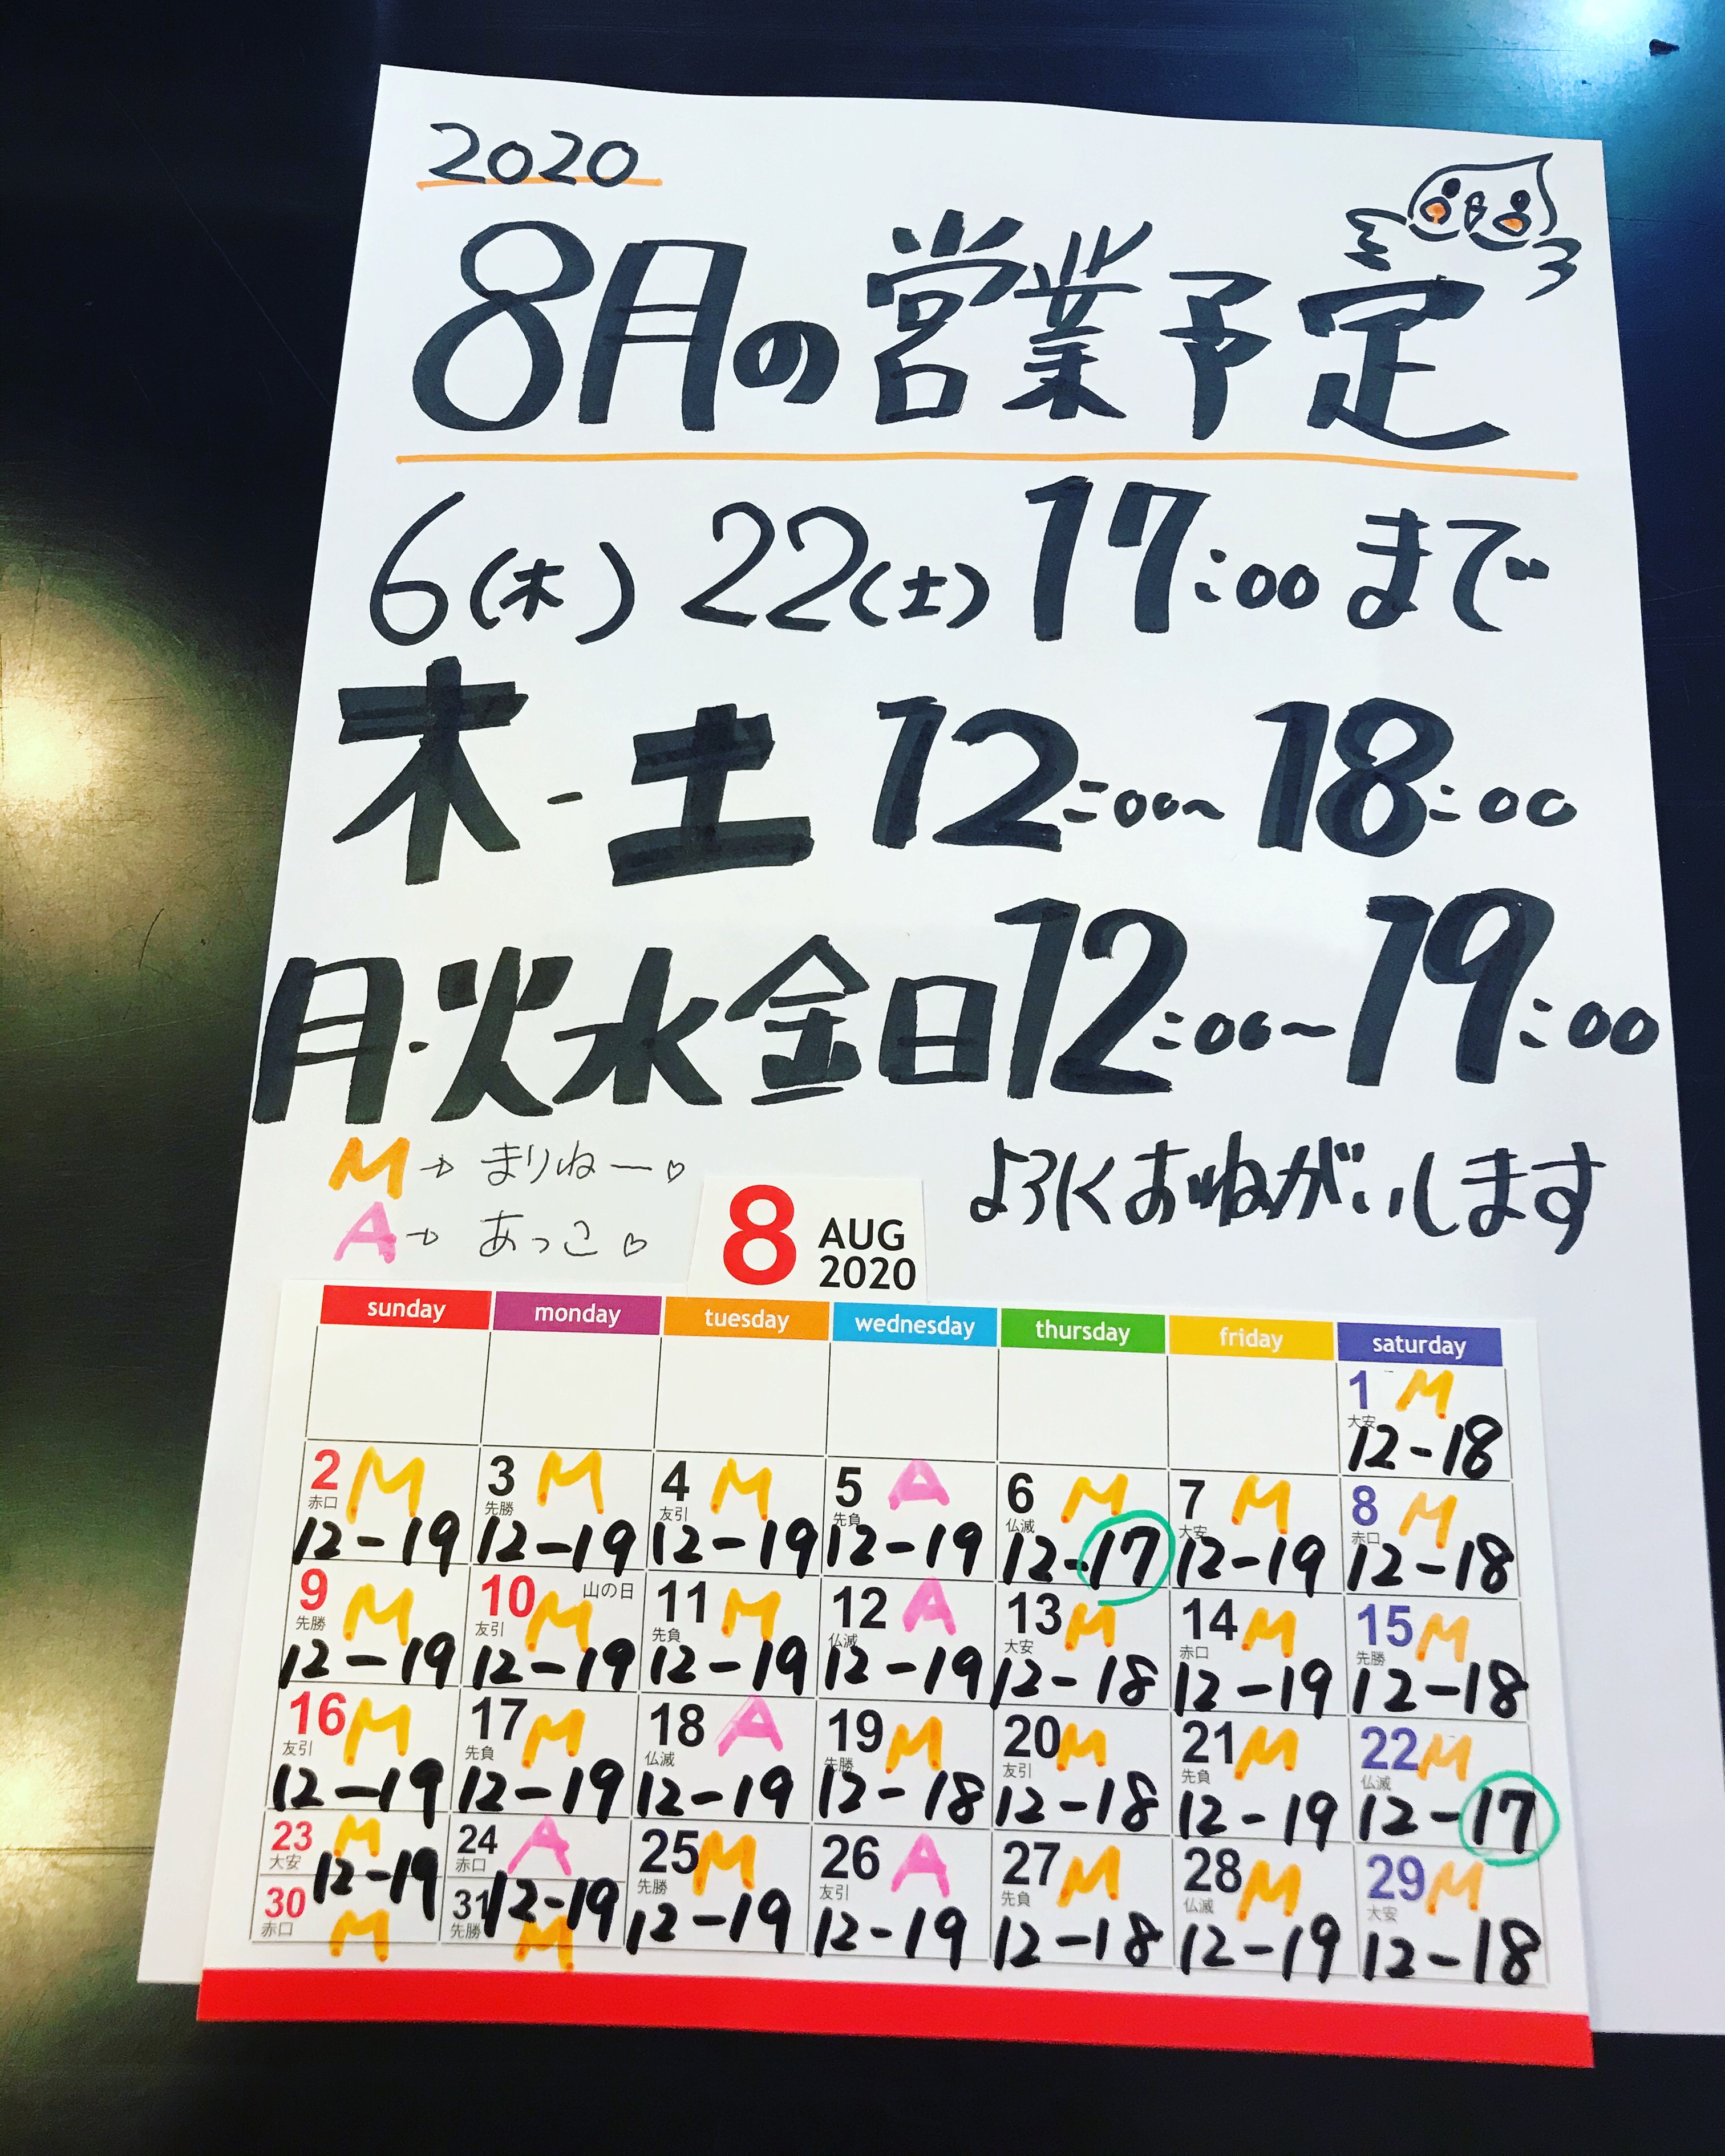 2020
8月の営業予定
6(木) 22(土) 17:00 まで
木-土 12:00~18:00
月・火水金日12:00~19:00
M→まりねー♡
A→あっこ♡
よろしくおねがいします
8 AUG 2020
sunday monday tuesday wednesday thursday friday saturday
1 M
大安
12-18
2 M 3 M 4 M 5 A 6 M 7 M 8 M
赤口 先勝 友引 先負 仏滅 大安 赤口
12-19 12-19 12-19 12-19 12-17 12-19 12-18
9 M 10 M 山の日 11 M 12 A 13 M 14 M 15 M
先勝 友引 先負 仏滅 大安 赤口 先勝
12-19 12-19 12-19 12-19 12-18 12-19 12-18
16 M 17 M 18 A 19 M 20 M 21 M 22 M
友引 先負 仏滅 先勝 友引 先負 仏滅
12-19 12-19 12-19 12-18 12-18 12-19 12-17
23 M 24 A 25 M 26 A 27 M 28 M 29 M
大安 赤口 先勝 友引 先負 仏滅 大安
12-19 12-19 12-19 12-19 12-18 12-19 12-18
30 M 31 M
赤口 先勝